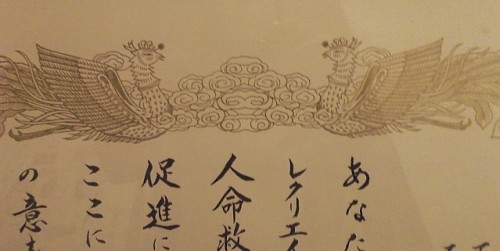 あなた
レクリエイ
人命救
促進に
ここに
の意を